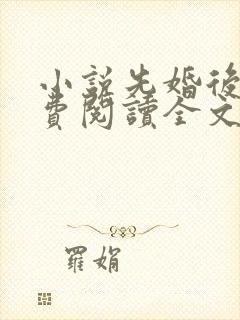 小説先婚後
費閱讀全文
羅娟